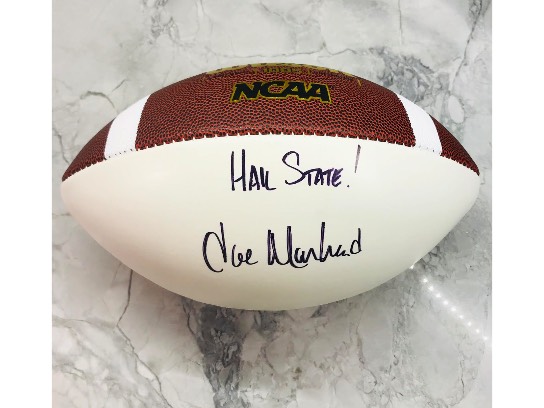 NCAA
HAIL STATE!
Joe Moorhead